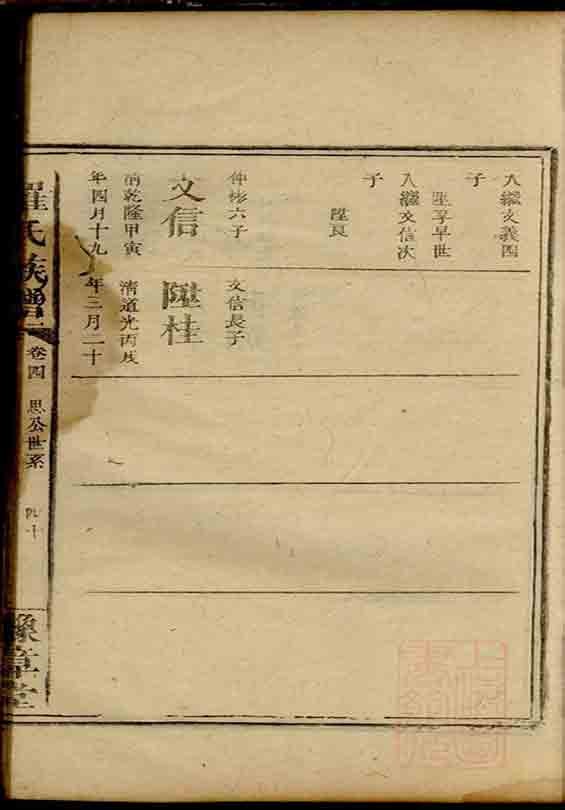 入繼文義四
子
陞孚早世
入繼文信次
子
陞良
仲彬六子
文信
清乾隆甲寅
年四月十九
文信長子
陞桂
清道光丙戌
年三月二十
羅氏族譜
卷四
思公世系
四十
豫章堂